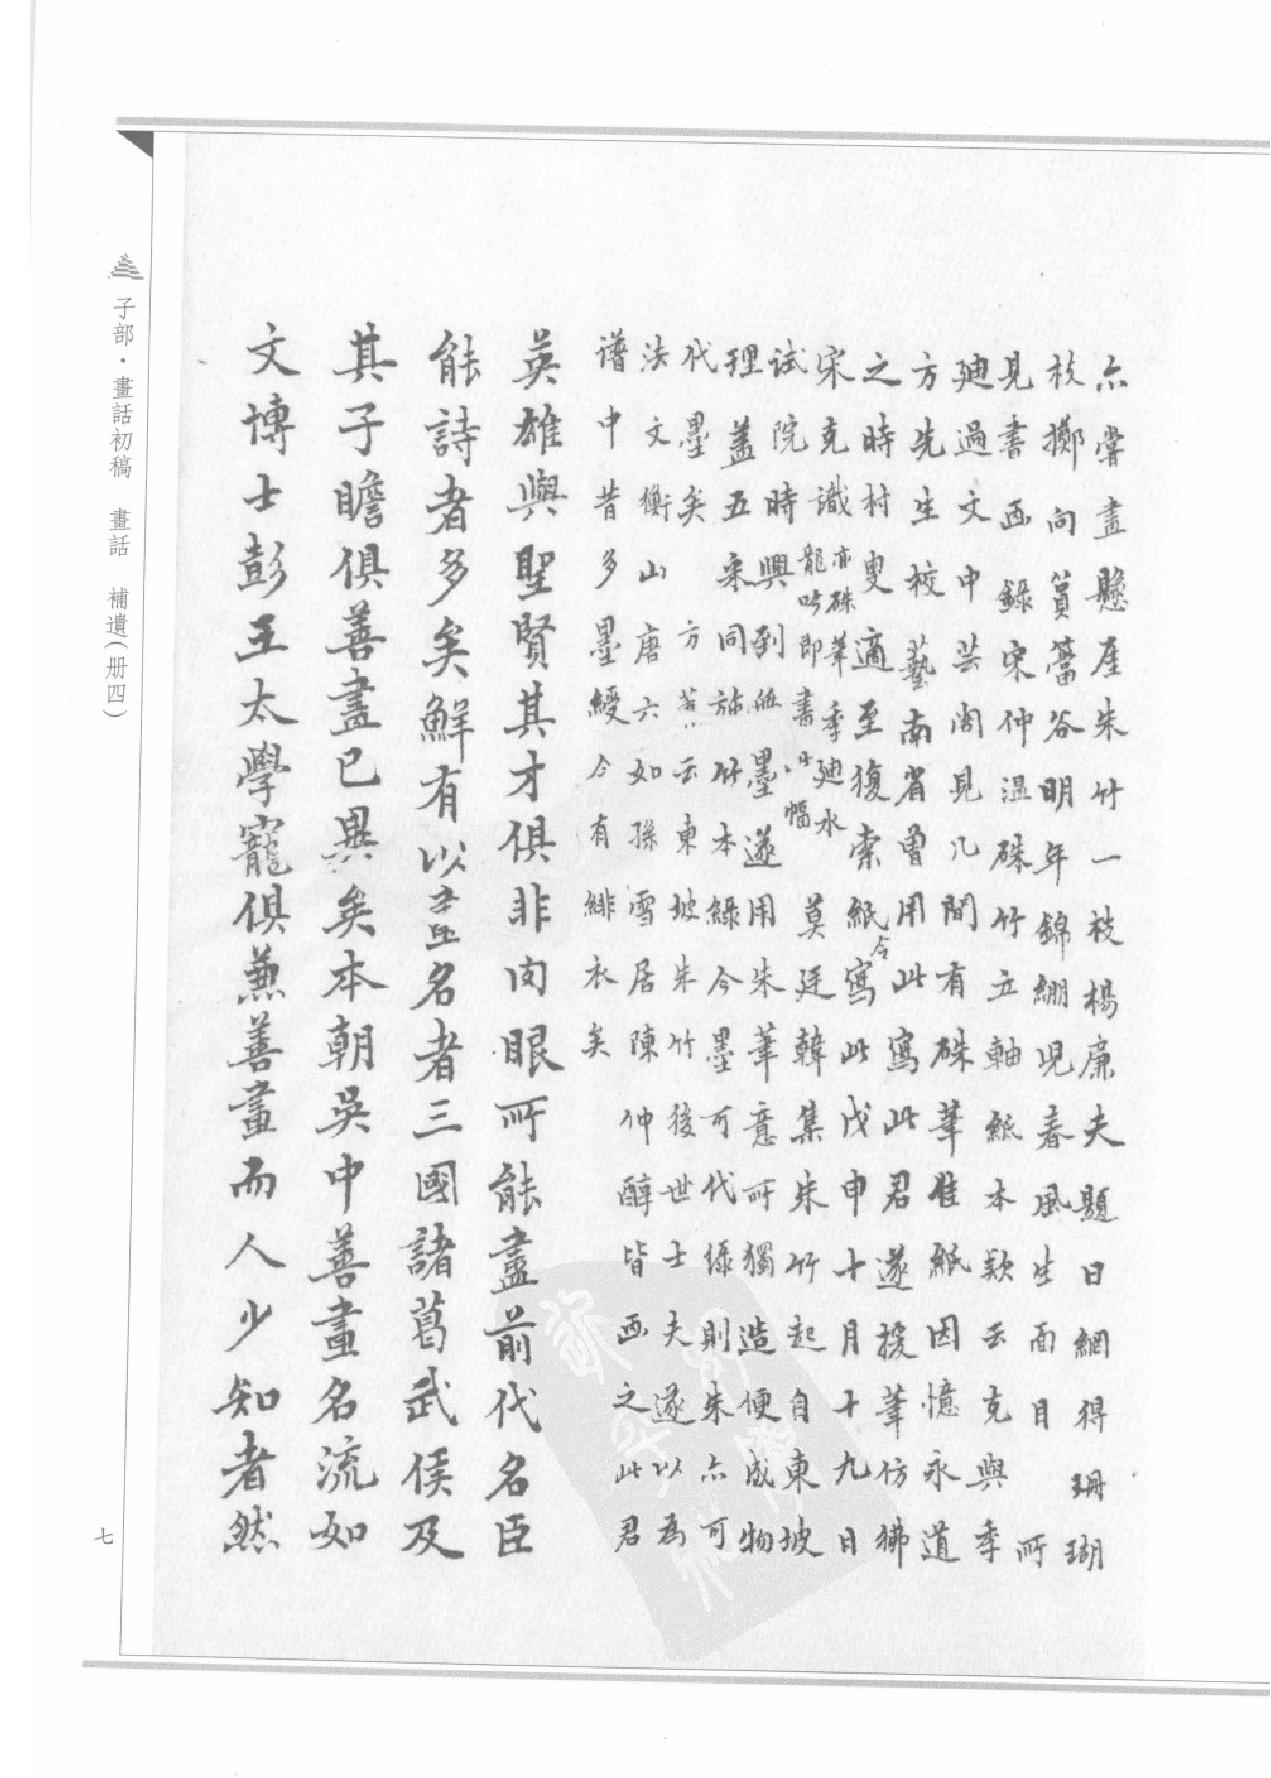 亦嘗畫懸崖朱竹一枝楊廉夫題曰網得珊瑚
枝擲向篔簹谷明年錦綳児春風生面目 所
見書画錄宋仲温硃竹立軸紙本款云克與季
廸過文中芸閣見几間有硃筆佳紙因憶永道
方先生校藝南省曾用此寫此君遂援筆仿彿
之時村叟適至復索紙令寫此戊申十月十九日
宋克識 亦硃筆季廸水
龍吟即書 幅 莫廷韓集朱竹起自東坡
試院時興到無墨遂用朱筆意所獨造便成物
理蓋五采同施竹本綠今墨可代綠則朱亦可
代墨矣 方 云東坡朱竹後世士夫遂以為
法文衡山唐六如孫雪居陳仲醇皆画之此君
譜中昔多墨綬今有緋衣矣
英雄與聖賢其才俱非肉眼所能盡前代名臣
能詩者多矣鮮有以畫名者三國諸葛武侯及
其子瞻俱善畫已異矣本朝吳中善畫名流如
文博士彭王太學寵俱兼善畫而人少知者然
子部·畫話初稿 畫話 補遺(册四)
七